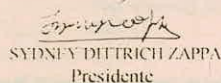 SYDNEY DITTRICH ZAPPA
Presidente